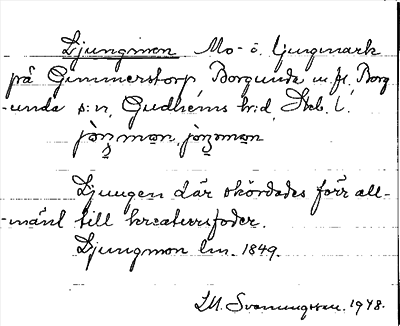 Ljungmon Mo- o. ljungmark
på Gimmerstorp Borgunda m. fl. Borg-
unda s:n, Gudhems h:d, Skb. l.
Ljungen där skördades förr all-
mänt till kreatursfoder.
Ljungmon lm. 1849.
I.M. Svenningsson. 1948.